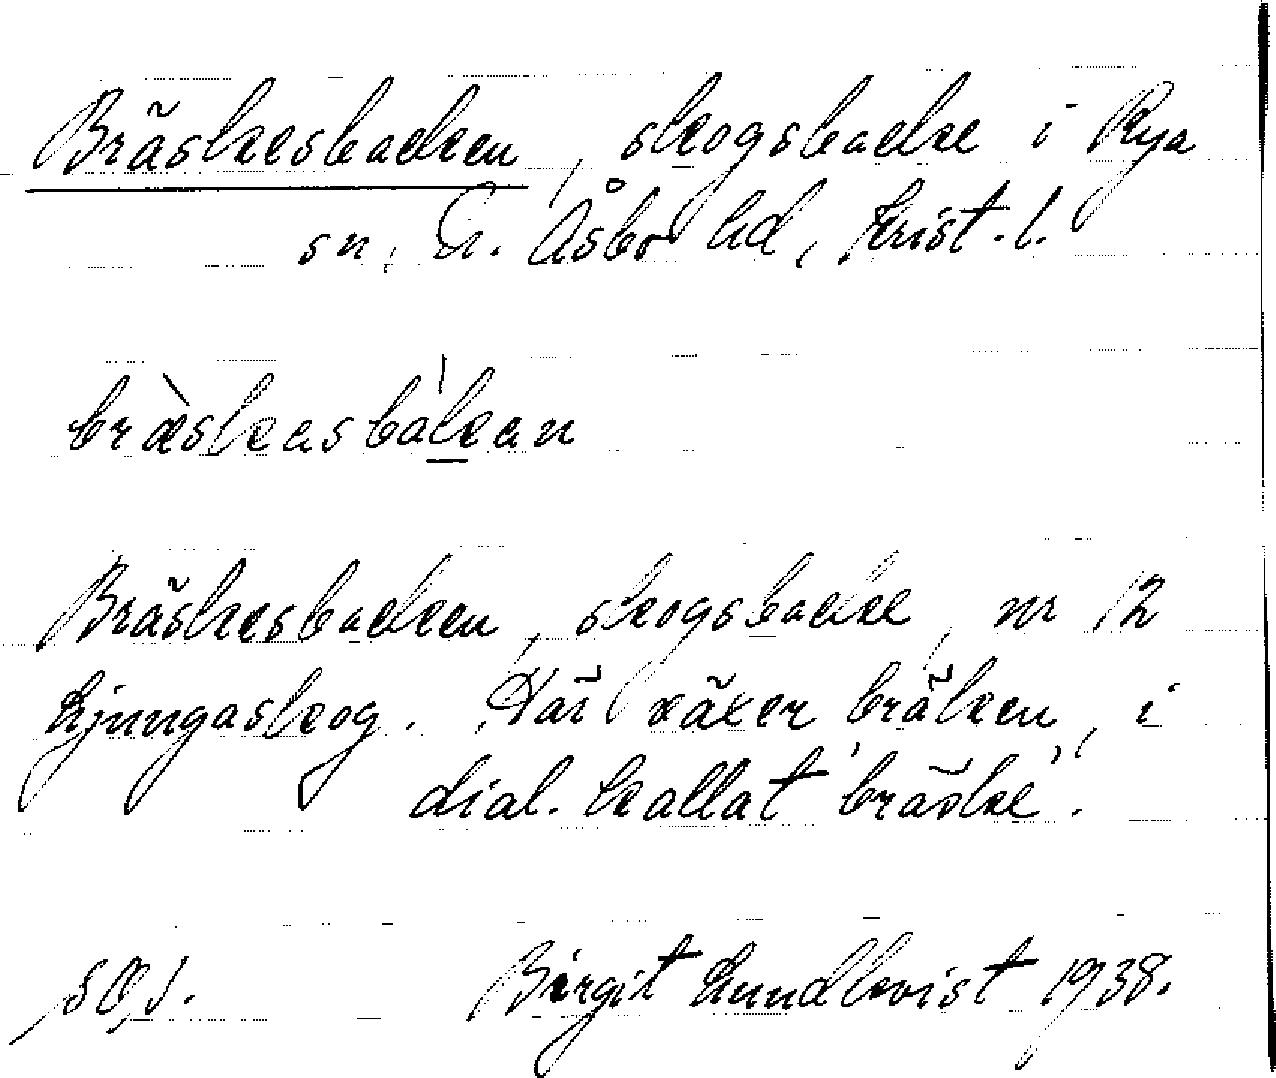 Bräskesbacken, skogsbacke i Rya
sn, N. Åsbo hd, Krist. l.
bræ̀skasbákan
Bräskesbacken, skogsbacke, nr 12
Ljungaskog. Där växer bräken, i
dial. kallat 'bräske'.
Birgit Lundkvist 1938.